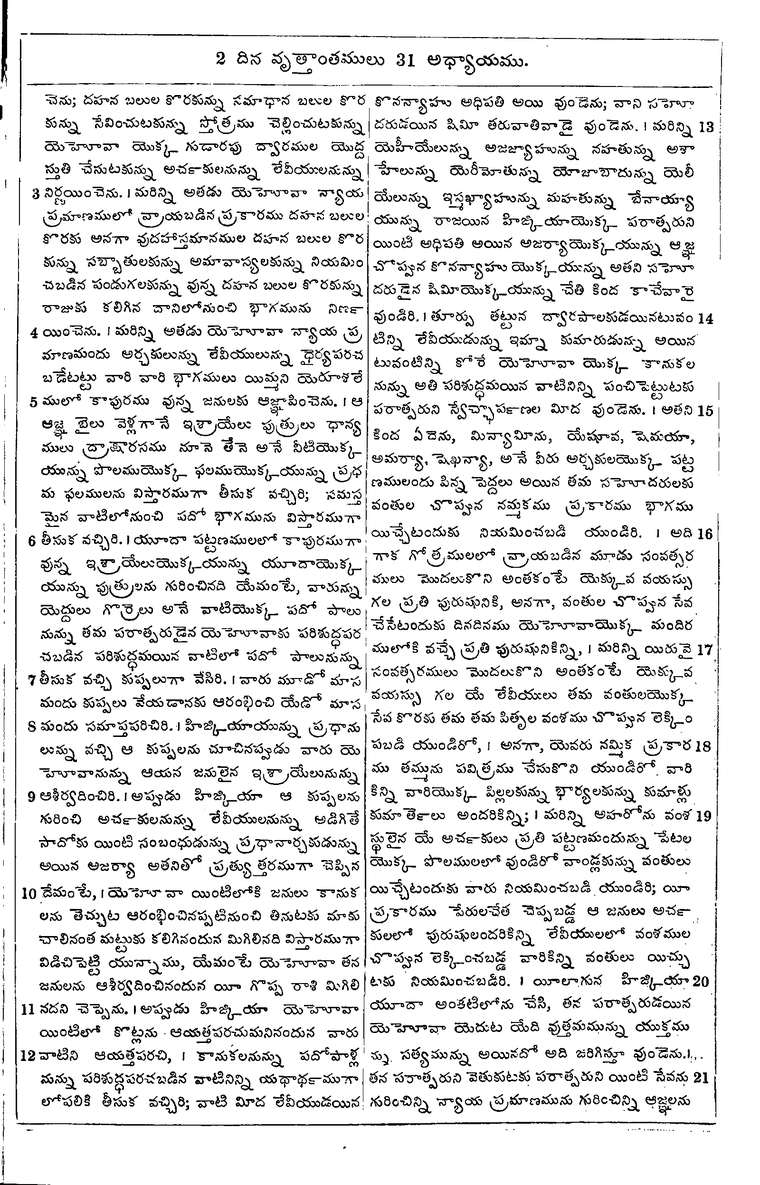 2 దిన వృత్తాంతములు 31 అధ్యాయము.
చెను; దహన బలుల కొరకున్ను సమాధాన బలుల కొర
కున్ను సేవించుటకున్ను స్తోత్రము చెల్లించుటకున్ను
యెహోవా యొక్క గుడారపు ద్వారముల యొద్ద
స్తుతి చేసుటకున్ను అర్చకులనున్ను లేవీయులనున్ను
3 నిర్ణయించెను. । మరిన్ని అతడు యెహోవా న్యాయ
ప్రమాణములో వ్రాయబడిన ప్రకారము దహన బలుల
కొరకు అనగా వుదహాస్తమానముల దహన బలుల కొర
కున్ను సబ్బాతులకున్ను అమావాస్యలకున్ను నియమిం
చబడిన పండుగలకున్ను వున్న దహన బలుల కొరకున్ను
రాజుకు కలిగిన దానిలోనుంచి భాగమును నిర్ణ
యించెను.
4 యించెను. । మరిన్ని అతడు యెహోవా న్యాయ ప్ర
మాణమందు అర్చకులున్ను లేవీయులున్ను ధైర్యపరచ
బడేటట్టు వారి వారి భాగములు యిమ్మని యెరూశలే
5 ములో కాపురము వున్న జనులకు ఆజ్ఞాపించెను. । ఆ
ఆజ్ఞ బైలు వెళ్లగానే ఇశ్రాయేలు పుత్రులు ధాన్య
ములు ద్రాక్షారసము నూనె తేనె అనే వీటియొక్క
యున్ను పొలముయొక్క ఫలముయొక్కయున్ను ప్రథ
మ ఫలములను విస్తారముగా తీసుక వచ్చిరి; సమస్త
మైన వాటిలోనుంచి పదో భాగమును విస్తారముగా
6 తీసుక వచ్చిరి. । యూదా పట్టణములలో కాపురముగా
వున్న ఇశ్రాయేలుయొక్కయున్ను యూదాయొక్క
యున్ను పుత్రులను గురించినది యేమంటే, వారున్ను
యెద్దులు గొర్రెలు అనే వాటియొక్క పదో పాలు
నున్ను తమ పరాత్పరుడైన యెహోవాకు పరిశుద్ధపర
చబడిన పరిశుద్ధమయిన వాటిలో పదో పాలునున్ను
7 తీసుక వచ్చి కుప్పలుగా వేసిరి. । వారు మూడో మాస
మందు కుప్పలు వేయడానకు ఆరంభించి యేడో మాస
8 మందు సమాప్తపరిచిరి. । హిజ్కియాయున్ను ప్రధాను
లున్ను వచ్చి ఆ కుప్పలను చూచినప్పుడు వారు యె
హోవానున్ను ఆయన జనులైన ఇశ్రాయేలునున్ను
9 ఆశీర్వదించిరి. । అప్పుడు హిజ్కియా ఆ కుప్పలను
గురించి అర్చకులనున్ను లేవీయులనున్ను అడిగితే
సాదోకు యింటి సంబంధుడున్ను ప్రధానార్చకుడున్ను
అయిన అజర్యా అతనితో ప్రత్యుత్తరముగా చెప్పిన
10 దేమంటే, । యెహోవా యింటిలోకి జనులు కానుక
లను తెచ్చుట ఆరంభించినప్పటినుంచి తినుటకు మాకు
చాలినంత మట్టుకు కలిగినందున మిగిలినది విస్తారముగా
విడిచిపెట్టి యున్నాము, యేమంటే యెహోవా తన
జనులను ఆశీర్వదించినందున యీ గొప్ప రాశి మిగిలి
11 నదని చెప్పెను. । అప్పుడు హిజ్కియా యెహోవా
యింటిలో కొట్లను ఆయత్తపరచుమనినందున వారు
12 వాటిని ఆయత్తపరచి, । కానుకలనున్ను పదోపాళ్ల
నున్ను పరిశుద్ధపరచబడిన వాటినిన్ని యథార్థముగా
లోపలికి తీసుక వచ్చిరి; వాటి మీద లేవీయుడయిన
కొనన్యాహు అధిపతి అయి వుండెను; వాని సహో
దరుడయిన షిమీ తరువాతివాడై వుండెను. । మరిన్ని 13
యెహీయేలున్ను అజజ్యాహున్ను నహతున్ను అశా
హేలున్ను యెరీమోతున్ను యోజాబాదున్ను యెలీ
యేలున్ను ఇస్మఖ్యాహున్ను మహతున్ను బేనాయ్యా
యున్ను రాజయిన హిజ్కియాయొక్క పరాత్పరుని
యింటి అధిపతి అయిన అజర్యాయొక్కయున్ను ఆజ్ఞ
చొప్పున కొనన్యాహు యొక్కయున్ను అతని సహో
దరుడైన షిమీయొక్కయున్ను చేతి కింద కాచేవారై
వుండిరి. । తూర్పు తట్టున ద్వారపాలకుడయినటువం 14
టిన్ని లేవీయుడున్ను ఇమ్నా కుమారుడున్ను అయిన
టువంటిన్ని కోరే యెహోవా యొక్క కానుకల
నున్ను అతి పరిశుద్ధమయిన వాటినిన్ని పంచిపెట్టుటకు
పరాత్పరుని స్వేచ్ఛార్పణల మీద వుండెను. । అతని 15
కింద ఏదెను, మిన్యామీను, యేషూవ, షెమయా,
అమర్యా, షెఖన్యా, అనే వీరు అర్చకులయొక్క పట్ట
ణములందు పిన్న పెద్దలు అయిన తమ సహోదరులకు
వంతుల చొప్పున నమ్మకము ప్రకారము భాగము
యిచ్చేటందుకు నియమించబడి యుండిరి. । అది 16
గాక గోత్రములలో వ్రాయబడిన మూడు సంవత్సర
ములు మొదలుకొని అంతకంటే యెక్కువ వయస్సు
గల ప్రతి పురుషునికి, అనగా, వంతుల చొప్పున సేవ
చేసేటందుకు దినదినము యెహోవాయొక్క మందిర
ములోకి వచ్చే ప్రతి పురుషునికిన్ని, । మరిన్ని యిరువై 17
సంవత్సరములు మొదలుకొని అంతకంటే యెక్కువ
వయస్సు గల యే లేవీయులు తమ వంతులయొక్క
సేవ కొరకు తమ తమ పితృల వంశము చొప్పున లెక్కిం
పబడి యుండిరో, । అనగా, యెవరు నమ్మిక ప్రకార 18
ము తమ్మును పవిత్రము చేసుకొని యుండిరో వారి
కిన్ని వారియొక్క పిల్లలకున్ను భార్యలకున్ను కుమాళ్లు
కుమార్తెలు అందరికిన్ని; । మరిన్ని అహరోను వంశ 19
స్థులైన యే అర్చకులు ప్రతి పట్టణమందున్ను పేటల
యొక్క పొలములలో వుండిరో వాండ్లకున్ను వంతులు
యిచ్చేటందుకు వారు నియమించబడి యుండిరి; యీ
ప్రకారము పేరులచేత చెప్పబడ్డ ఆ జనులు అర్చ
కులలో పురుషులందరికిన్ని లేవీయులలో వంశముల
చొప్పున లెక్కించబడ్డ వారికిన్ని వంతులు యిచ్చు
టకు నియమించబడిరి. । యీలాగున హిజ్కియా 20
యూదా అంతటిలోను చేసి, తన పరాత్పరుడయిన
యెహోవా యెదుట యేది వుత్తమమున్ను యుక్తము
న్ను సత్యమున్ను అయినదో అది జరిగిస్తూ వుండెను. ।
తన పరాత్పరుని వెతుకుటకు పరాత్పరుని యింటి సేవను 21
గురించిన్ని న్యాయ ప్రమాణమును గురించిన్ని ఆజ్ఞలను